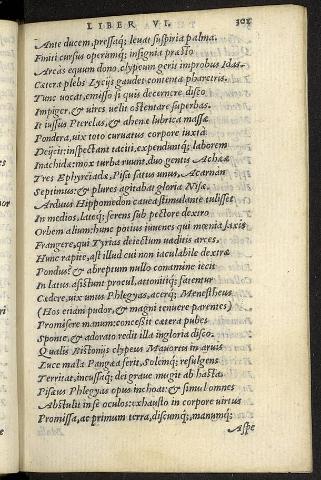 LIBER VI. 301
Ante ducem, pressaq; leuat suspiria palma.
Finiti cursus operumq; insignia præsto
Arcas equum dono, clypeum gerit improbus Idas.
Cætera plebs Lycijs gaudet contenta pharetris.
Tunc uocat, emisso si quis decernere disco
Impiger, & uires uelit ostentare superbas.
It iussus Pterelas, & ahenæ lubrica massæ
Pondera, uix toto curuatus corpore iuxtà
Deijcit: inspectant taciti, expenduntq; laborem
Inachidæ: mox turba ruunt, duo gentis Achææ
Tres Ephyreiadæ, Pisa satus unus, Acarnan
Septimus: & plures agitabat gloria Nisæ,
Arduus Hippomedon cauea stimulante tulisset
In medios, lateq; ferens sub pectore dextro
Orbem alium: hunc potius iuuenes qui mœnia saxis
Frangere, qui Tyrias deiectum uaditis arces,
Hunc rapite, ast illud cui non iaculabile dextræ
Pondus? & abreptum nullo conamine iecit
In latus. assistunt procul, attonitiq; fatentur
Cædere, uix unus Phlegyas, acerq; Menestheus
(Hos etiam pudor, & magni tenuere parentes)
Promisere manum: concessit cætera pubes
Sponte, & adorato redit illa ingloria disco.
Qualis Bistonijs clypeus Mauortis in aruis
Luce mala Pangæa ferit, Solemq; refulgens
Territat, incussaq; dei graue mugit ab hasta.
Pisæus Phlegyas opus inchoat: & simul omnes
Abstulit in se oculos: exhausto in corpore uirtus
Promissa, ac primum terra, discumq;, manumq;
Aspe